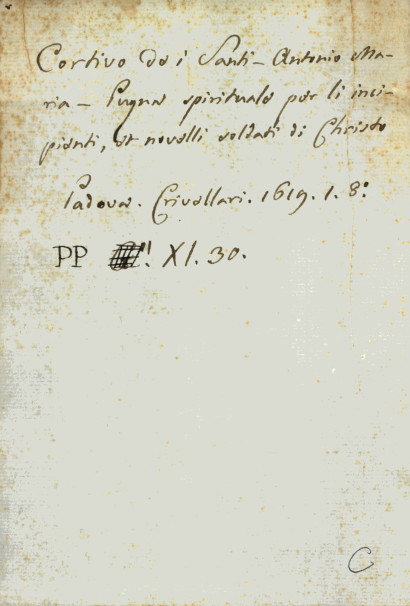 Cortivo de i Santi - Antonio Ma-
ria - Pugna spirituale per li inci-
pienti, et novelli soldati di Christo
Padova. Crivellari. 1619. 1. 8:
PP XI. 30.
C